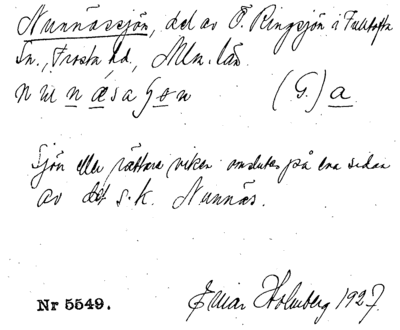 Nunnässjön, del av Ö. Ringsjön i Fulltofta
Sn., Frosta hd, Mlm. län
nunæsaʃøn (G.) a
Sjön eller rättare viken omslutes på ena sidan
av det s.k. Nunnäs.
Nr 5549. Ejnar Holmberg 1927.